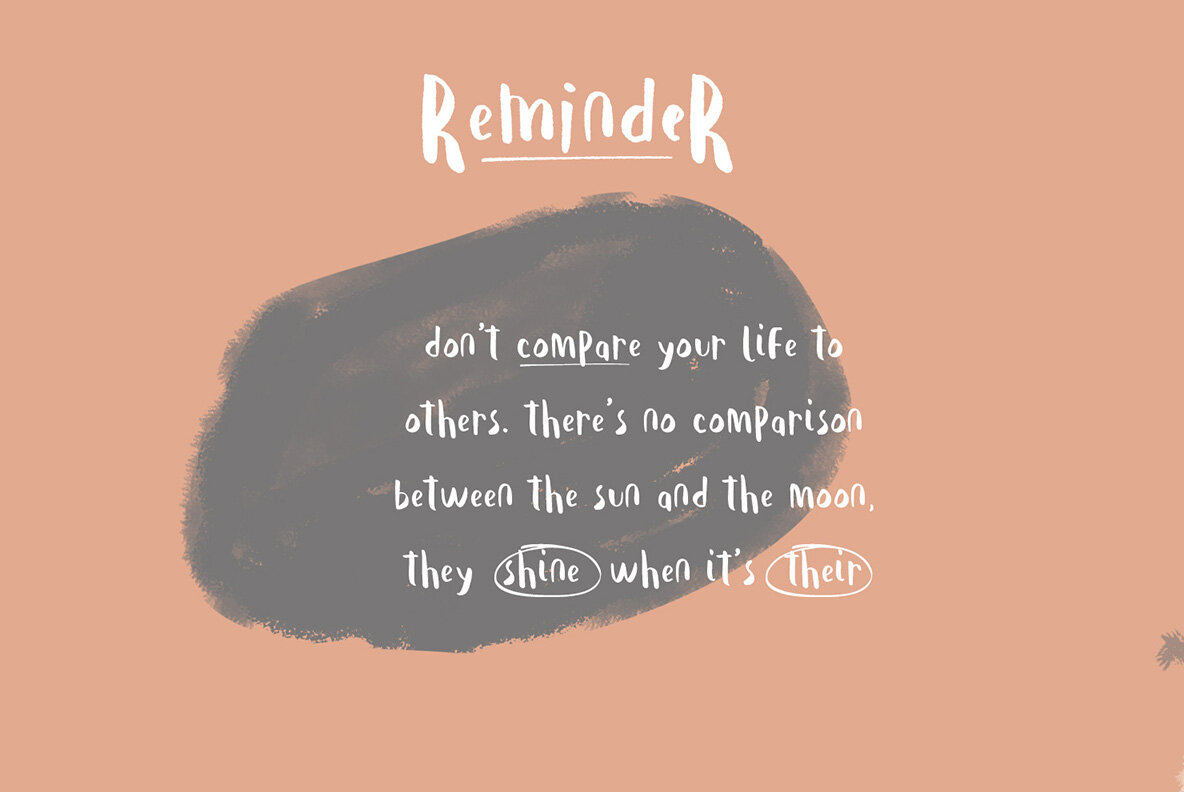 Reminder
don't compare your life to
others. there's no comparison
between the sun and the moon,
they shine when it's their